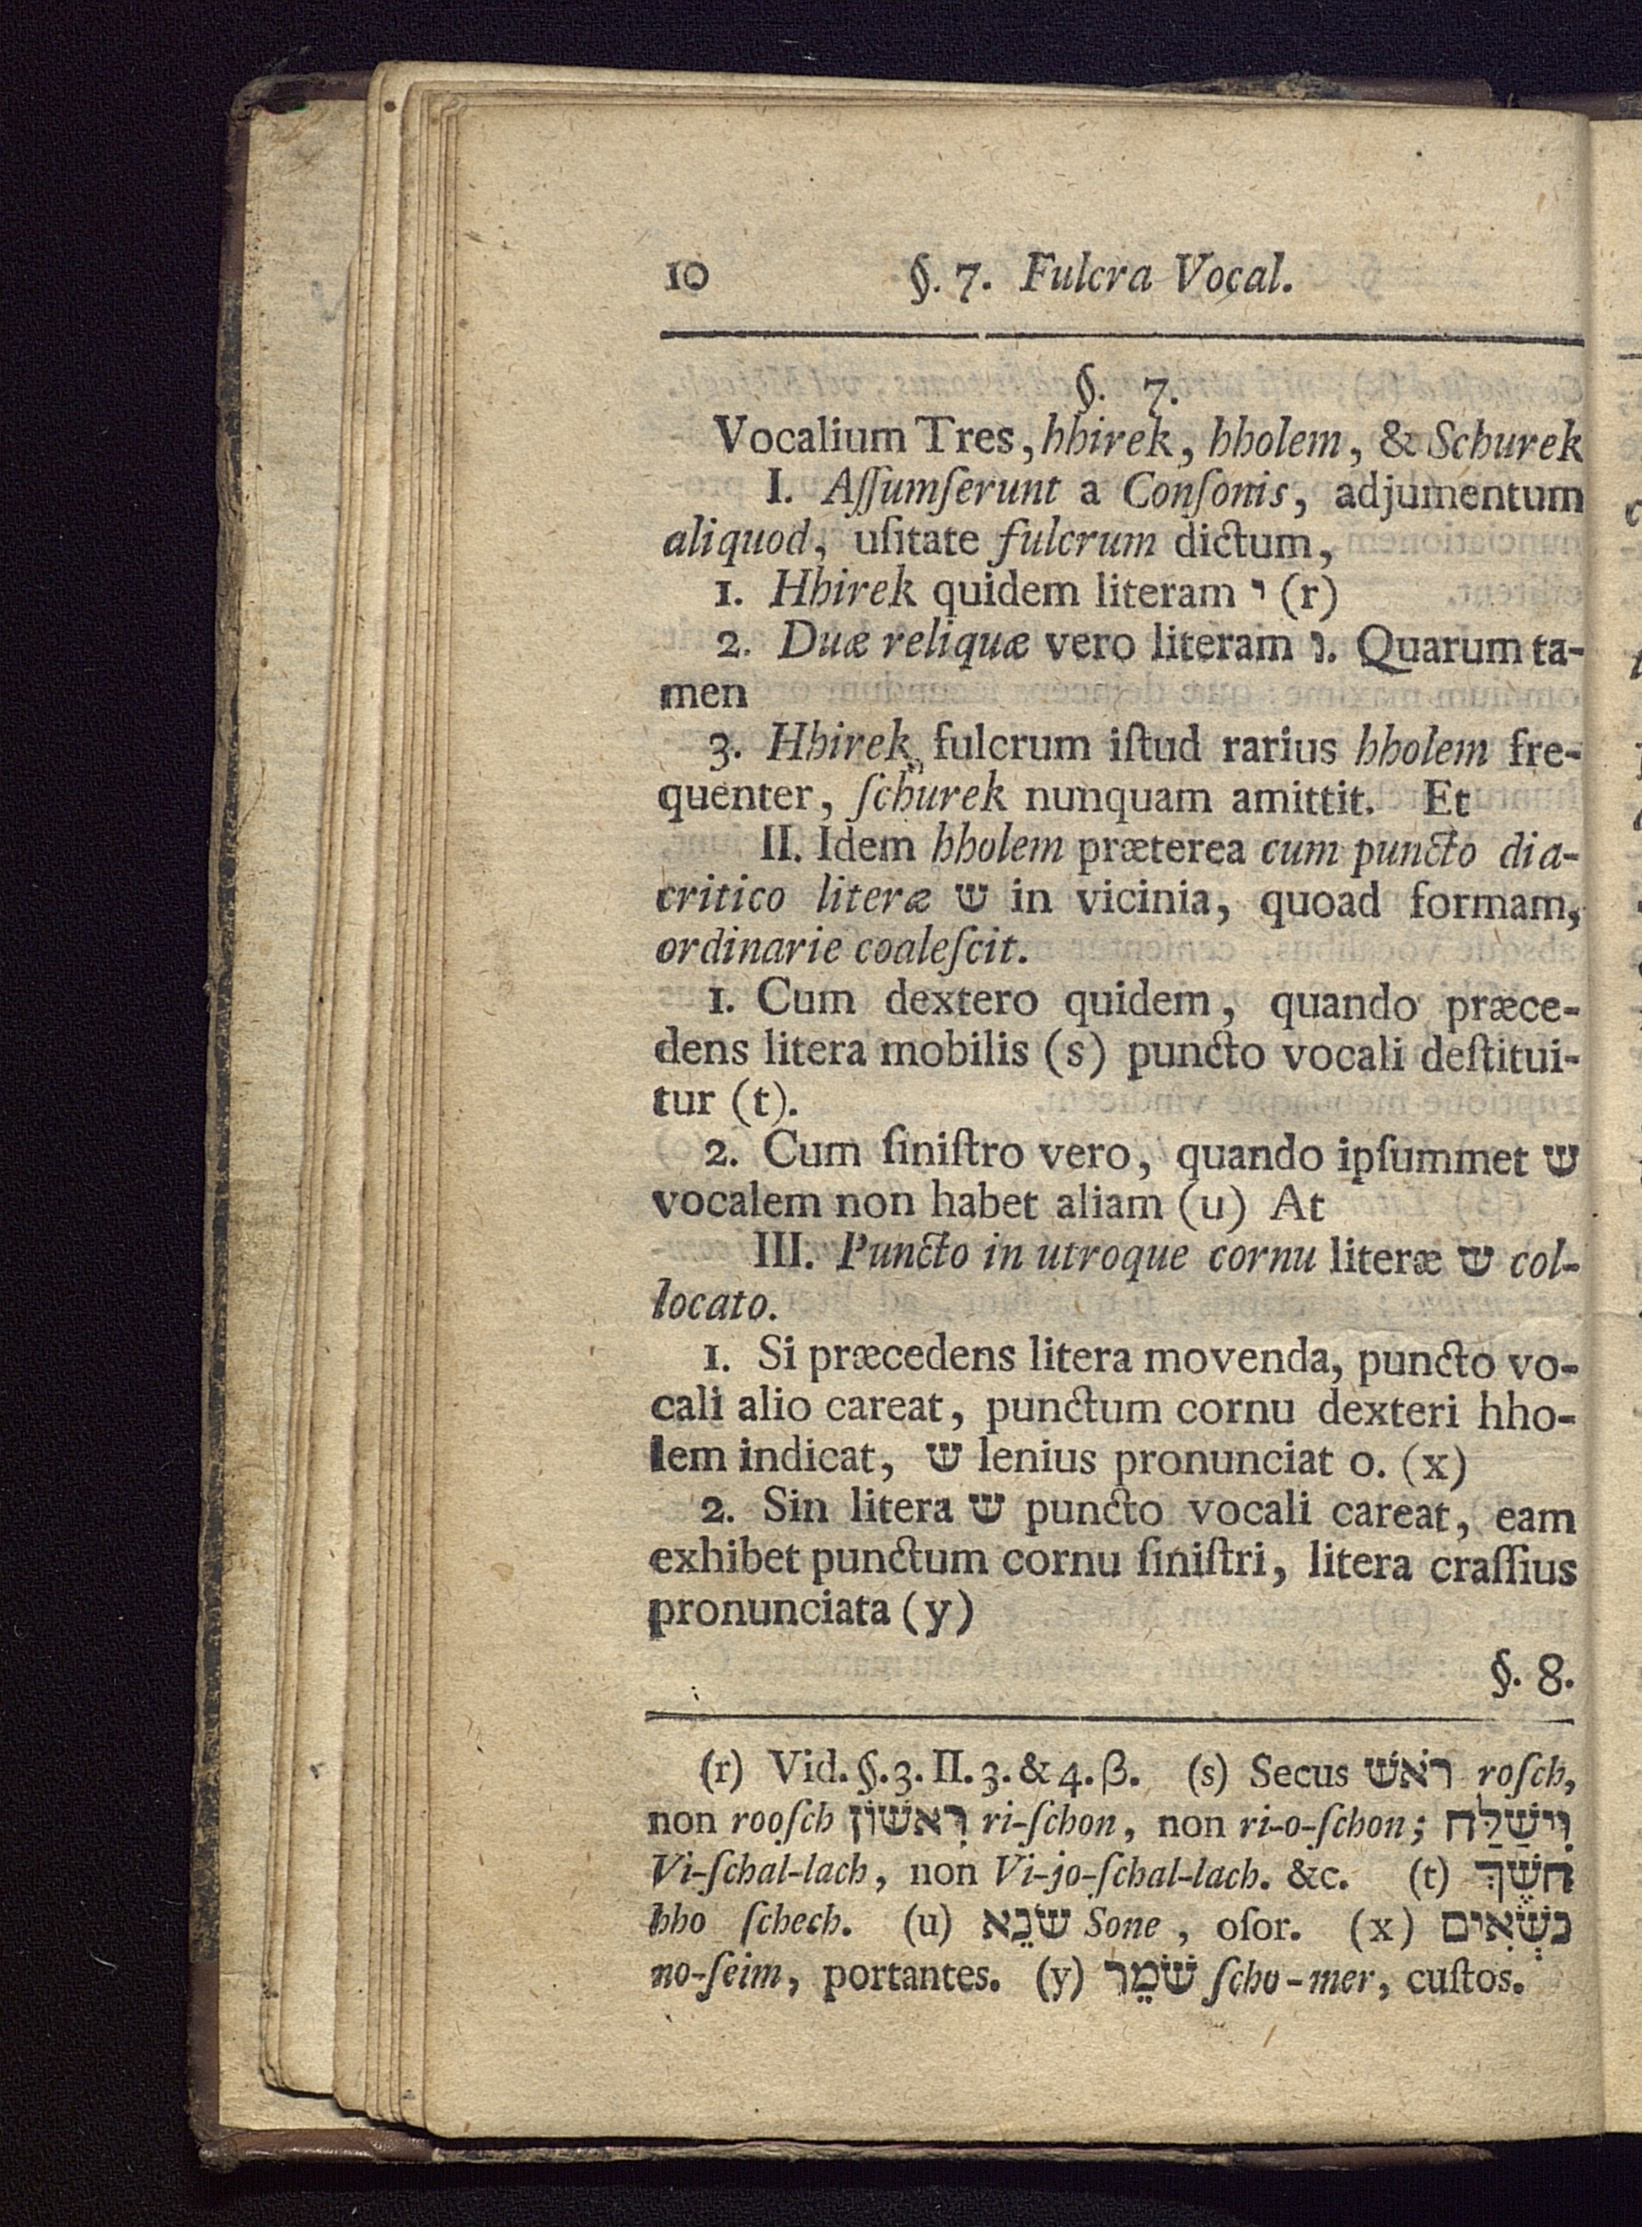 10 §. 7. Fulcra Vocal.
§. 7.
Vocalium Tres, hhirek, hholem, & Schurek
I. Aſſumſerunt a Conſonis, adjumentum
aliquod, uſitate fulcrum dictum,
1. Hhirek quidem literam י (r)
2. Duæ reliquæ vero literam ו. Quarum ta-
men
3. Hhirek fulcrum iſtud rarius hholem fre-
quenter, ſchurek nunquam amittit. Et
II. Idem hholem præterea cum puncto dia-
critico literæ ש in vicinia, quoad formam,
ordinarie coaleſcit.
1. Cum dextero quidem, quando præce-
dens litera mobilis (s) puncto vocali deſtitui-
tur (t).
2. Cum ſiniſtro vero, quando ipſummet ש
vocalem non habet aliam (u) At
III. Puncto in utroque cornu literæ ש col-
locato.
1. Si præcedens litera movenda, puncto vo-
cali alio careat, punctum cornu dexteri hho-
lem indicat, ש lenius pronunciat o. (x)
2. Sin litera ש puncto vocali careat, eam
exhibet punctum cornu ſiniſtri, litera craſſius
pronunciata (y)
§. 8.
(r) Vid. §. 3. II. 3. & 4. β. (s) Secus רֹאשׁ roſch,
non rooſch רִאשׁוֹן ri-ſchon, non ri-o-ſchon; וִישַׁלַּח
Vi-ſchal-lach, non Vi-jo-ſchal-lach. &c. (t) חשֶׁךְ
hho ſchech. (u) שׂנֵא Sone, oſor. (x) נשְׂאִים
no-ſeim, portantes. (y) שֹׁמֵר ſcho-mer, cuſtos.